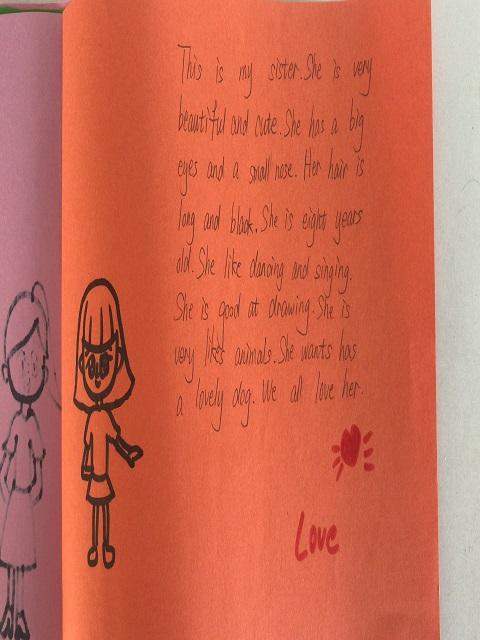 This is my sister. She is very
beautiful and cute. She has a big
eyes and a small nose. Her hair is
long and black. She is eight years
old. She like dancing and singing.
She is good at drawing. She is
very likes animals. She wants has
a lovely dog. We all love her.
Love